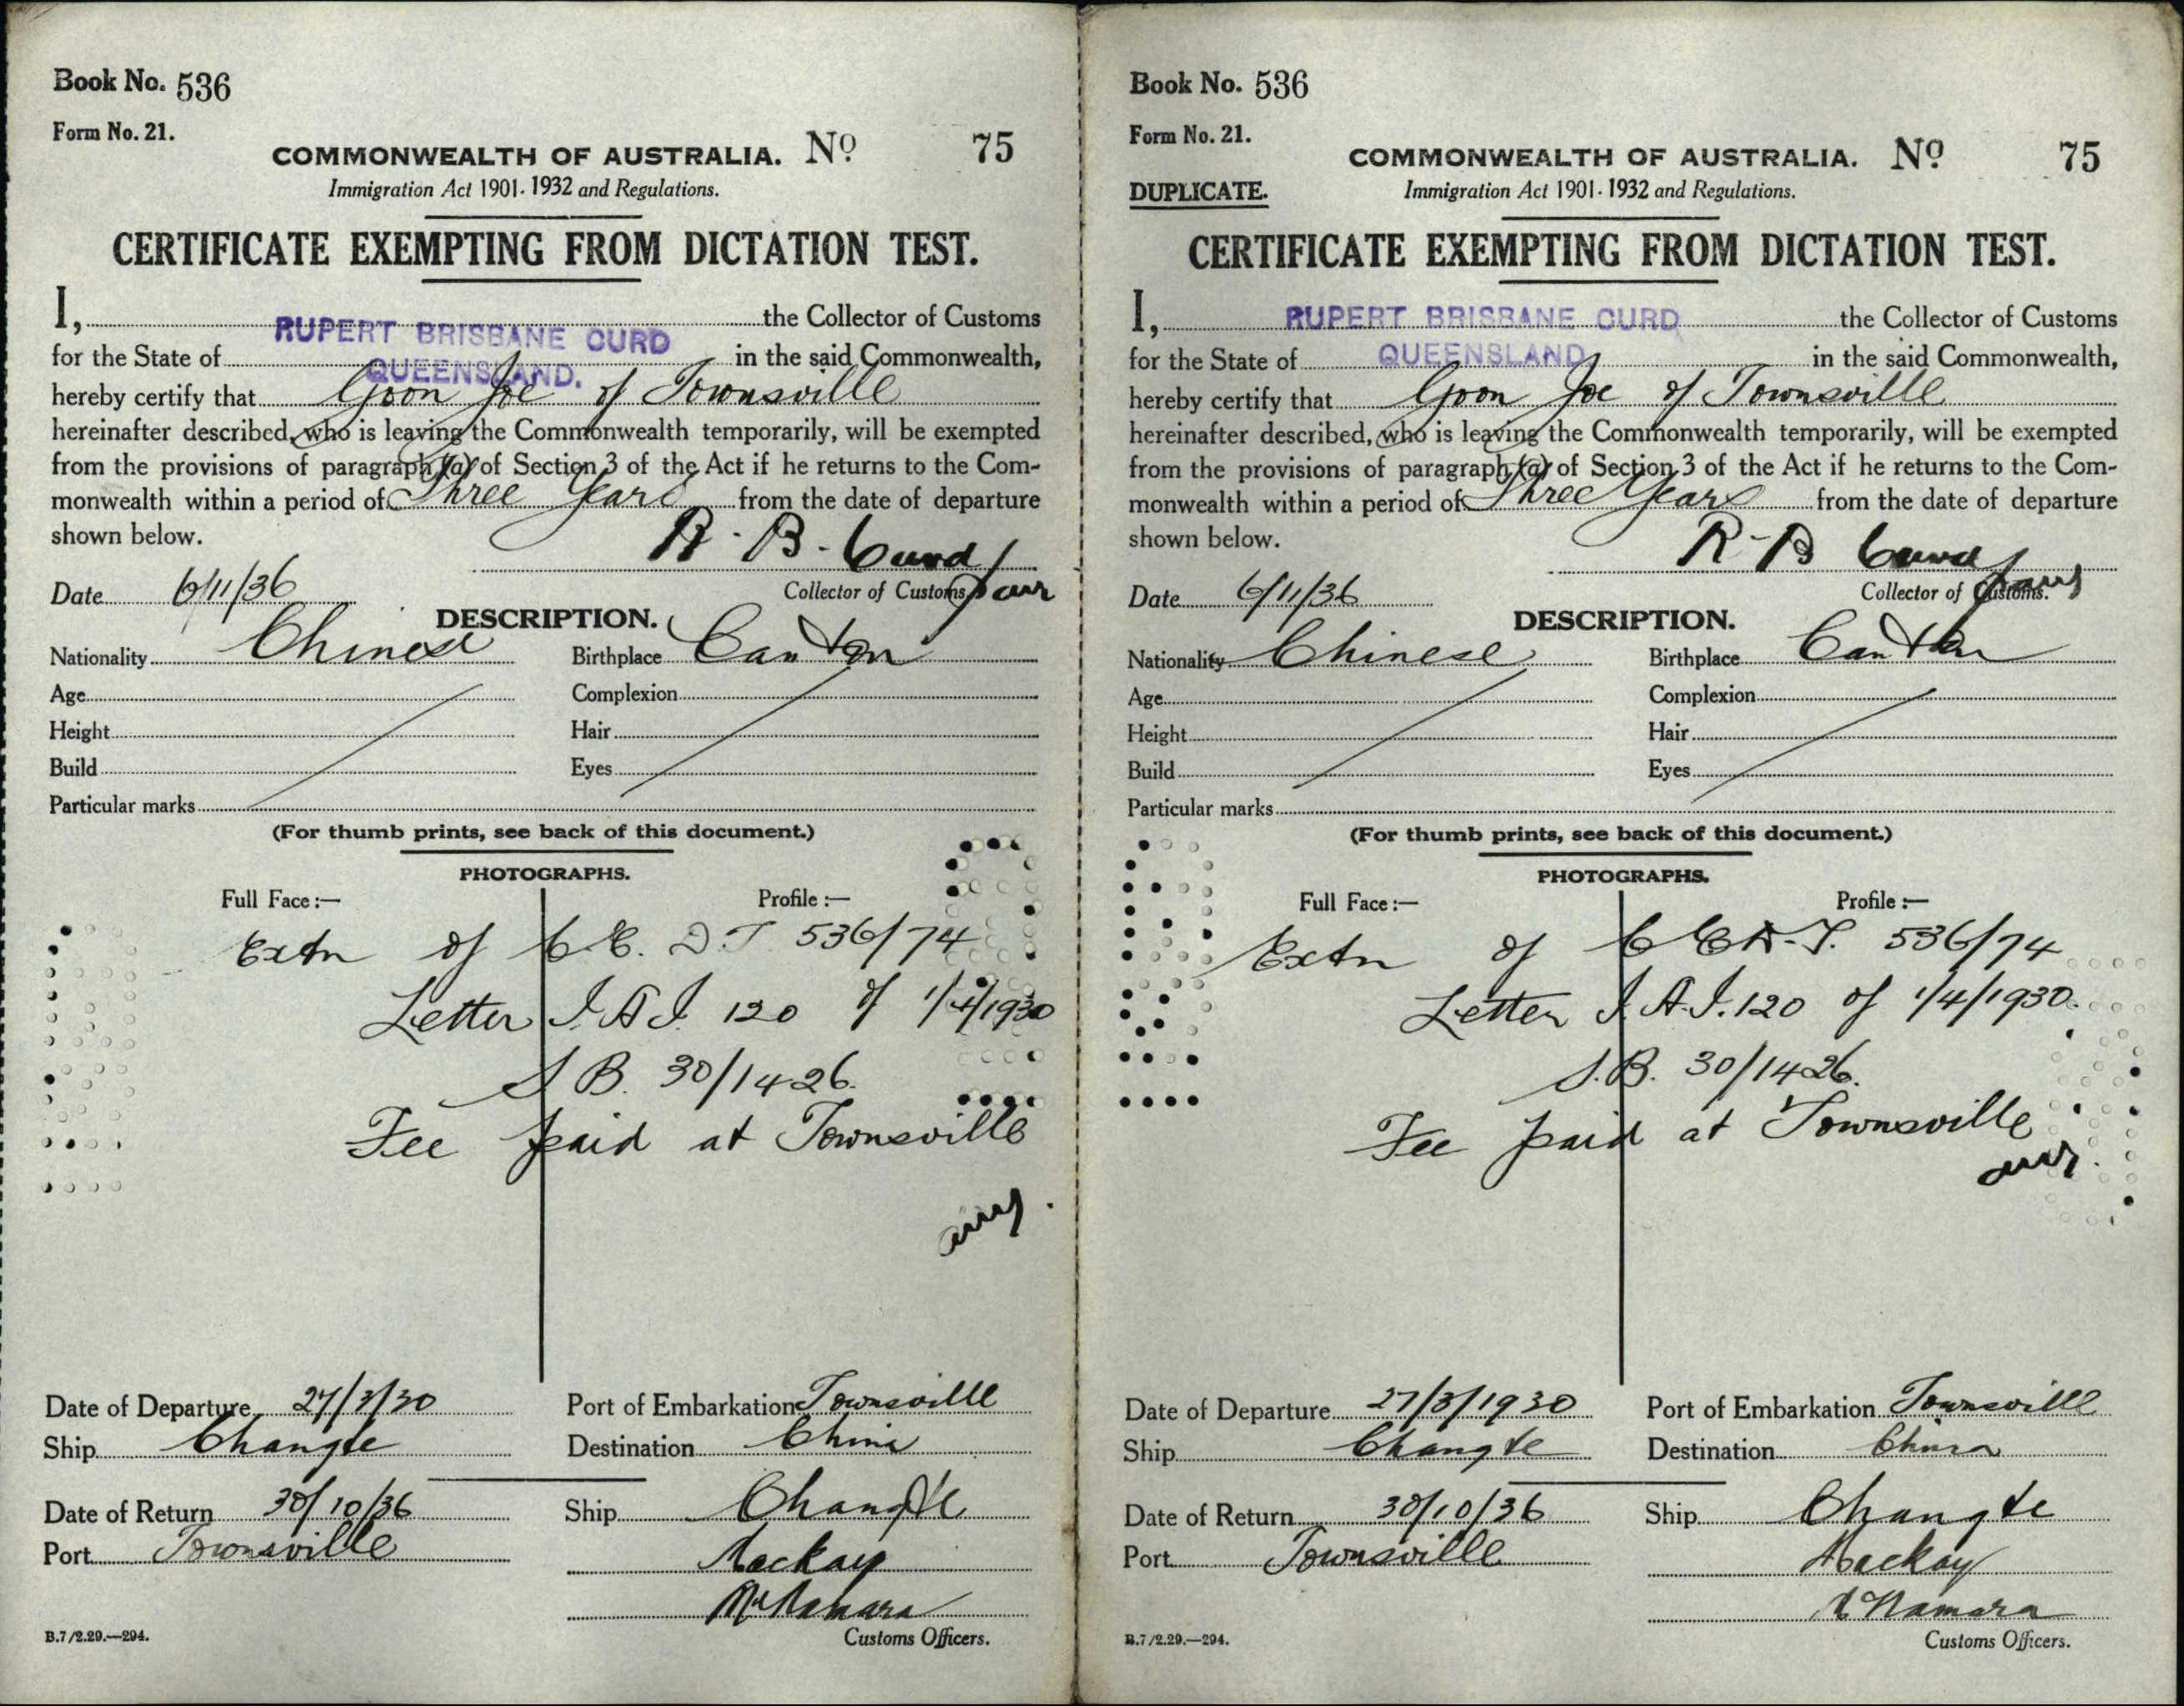 Book No. 536
Form No. 21.
COMMONWEALTH OF AUSTRALIA. No 75
Immigration Act 1901-1932 and Regulations.
CERTIFICATE EXEMPTING FROM DICTATION TEST.
I, RUPERT BRISBANE CURD the Collector of Customs
for the State of QUEENSLAND. in the said Commonwealth,
hereby certify that Goon Joe of Townsville
hereinafter described, who is leaving the Commonwealth temporarily, will be exempted
from the provisions of paragraph (a) of Section 3 of the Act if he returns to the Com-
monwealth within a period of Three Years from the date of departure
shown below.
R. B. Curd
Date 6/11/36 Collector of Customs
DESCRIPTION.
Nationality Chinese Birthplace Canton
Age Complexion
Height Hair
Build Eyes
Particular marks
(For thumb prints, see back of this document.)
PHOTOGRAPHS.
Full Face:— Profile:—
Extn of C.E.D.T 536/74
Letter I.A.I. 120 of 1/4/1930
S.B. 30/1426.
Fee paid at Townsville
Date of Departure 27/3/30 Port of Embarkation Townsville
Ship Changte Destination China
Date of Return 30/10/36 Ship Changte
Port Townsville Mackay
McNamara
B.7/2.29.—294. Customs Officers.
Book No. 536
Form No. 21.
COMMONWEALTH OF AUSTRALIA. No 75
DUPLICATE. Immigration Act 1901-1932 and Regulations.
CERTIFICATE EXEMPTING FROM DICTATION TEST.
I, RUPERT BRISBANE CURD the Collector of Customs
for the State of QUEENSLAND in the said Commonwealth,
hereby certify that Goon Joe of Townsville
hereinafter described, who is leaving the Commonwealth temporarily, will be exempted
from the provisions of paragraph (a) of Section 3 of the Act if he returns to the Com-
monwealth within a period of Three Years from the date of departure
shown below.
R-B Curd
Date 6/11/36 Collector of Customs.
DESCRIPTION.
Nationality Chinese Birthplace Canton
Age Complexion
Height Hair
Build Eyes
Particular marks
(For thumb prints, see back of this document.)
PHOTOGRAPHS.
Full Face:— Profile:—
Extn of C.E.D.T. 536/74
Letter I.A.I. 120 of 1/4/1930.
S.B. 30/1426.
Fee paid at Townsville
Date of Departure 27/3/1930 Port of Embarkation Townsville
Ship Changte Destination China
Date of Return 30/10/36 Ship Changte
Port Townsville Mackay
McNamara
B.7/2.29.—294. Customs Officers.